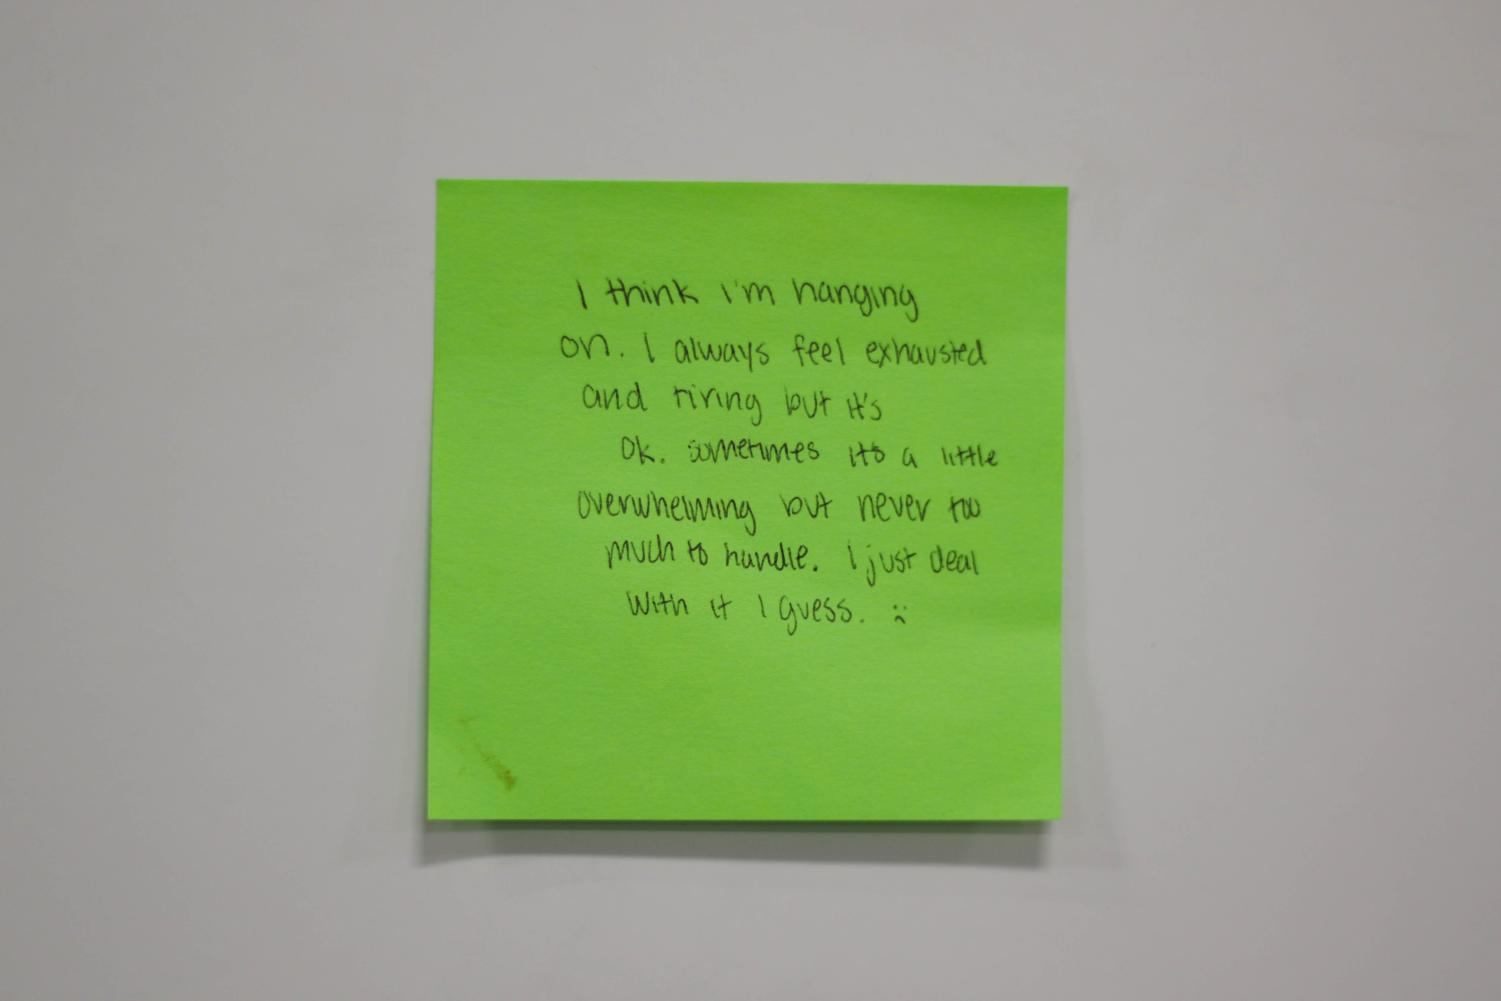 I think i'm hanging
on. I always feel exhausted
and tiring but it's
ok. sometimes it's a little
overwhelming but never too
much to handle. I just deal
with it I guess. :(